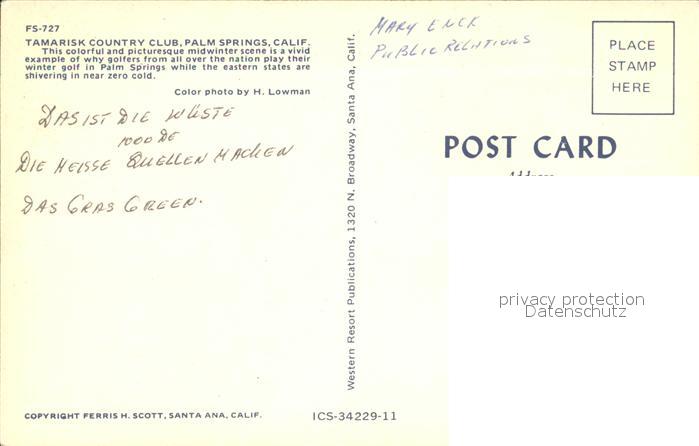 FS-727
TAMARISK COUNTRY CLUB, PALM SPRINGS, CALIF.
This colorful and picturesque midwinter scene is a vivid
example of why golfers from all over the nation play their
winter golf in Palm Springs while the eastern states are
shivering in near zero cold.
Color photo by H. Lowman
DAS IST DIE WÜSTE
1000 DE
DIE HEISSE QUELLEN MACHEN
DAS GRAS GREEN.
COPYRIGHT FERRIS H. SCOTT, SANTA ANA, CALIF.
Western Resort Publications, 1320 N. Broadway, Santa Ana, Calif.
MARY ENCK
PUBLIC RELATIONS
PLACE
STAMP
HERE
POST CARD
Address
privacy protection
Datenschutz
ICS-34229-11